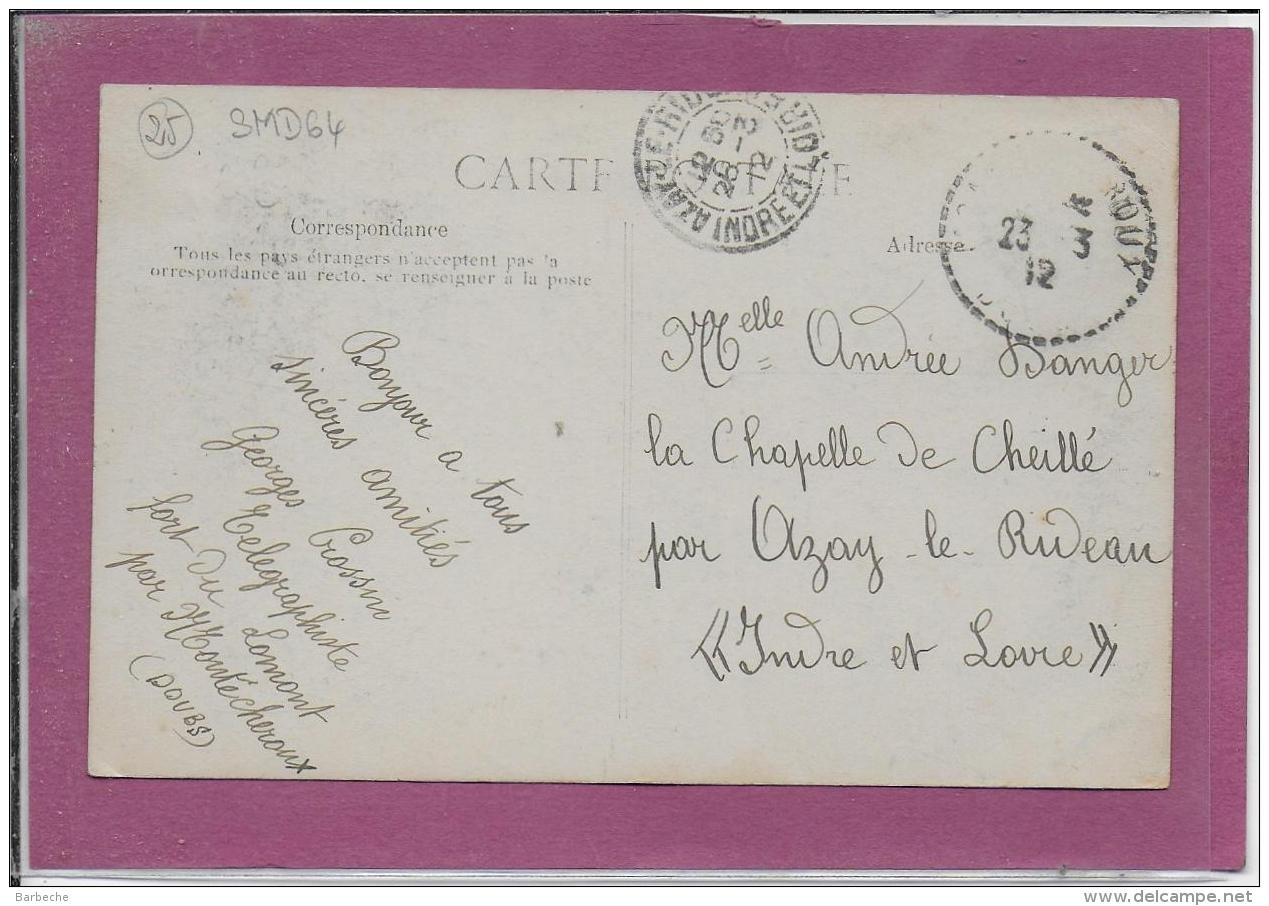 25
SMD64
CARTE POSTALE
AZAY-LE-RIDEAU
12 50
26 -3
12
INDRE ET LOIRE
23 3
12
Correspondance
Tous les pays étrangers n'acceptent pas la
orrespondance au recto, se renseigner à la poste
Bonjour a tous
sincéres amitiés
Georges Crossin
Telegraphiste
fort du Lomont
par Montécheroux
(DOUBS)
Adresse
Melle Andrée Danger
la Chapelle de Cheillé
par Azay-le-Rideau
«Indre et Loire»
Barbeche
delcampe.net